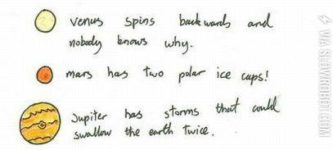 venus spins backwards and
nobody knows why.
mars has two polar ice caps!
Jupiter has storms that could
swallow the earth twice.
VIA SLAVOROBOT.COM